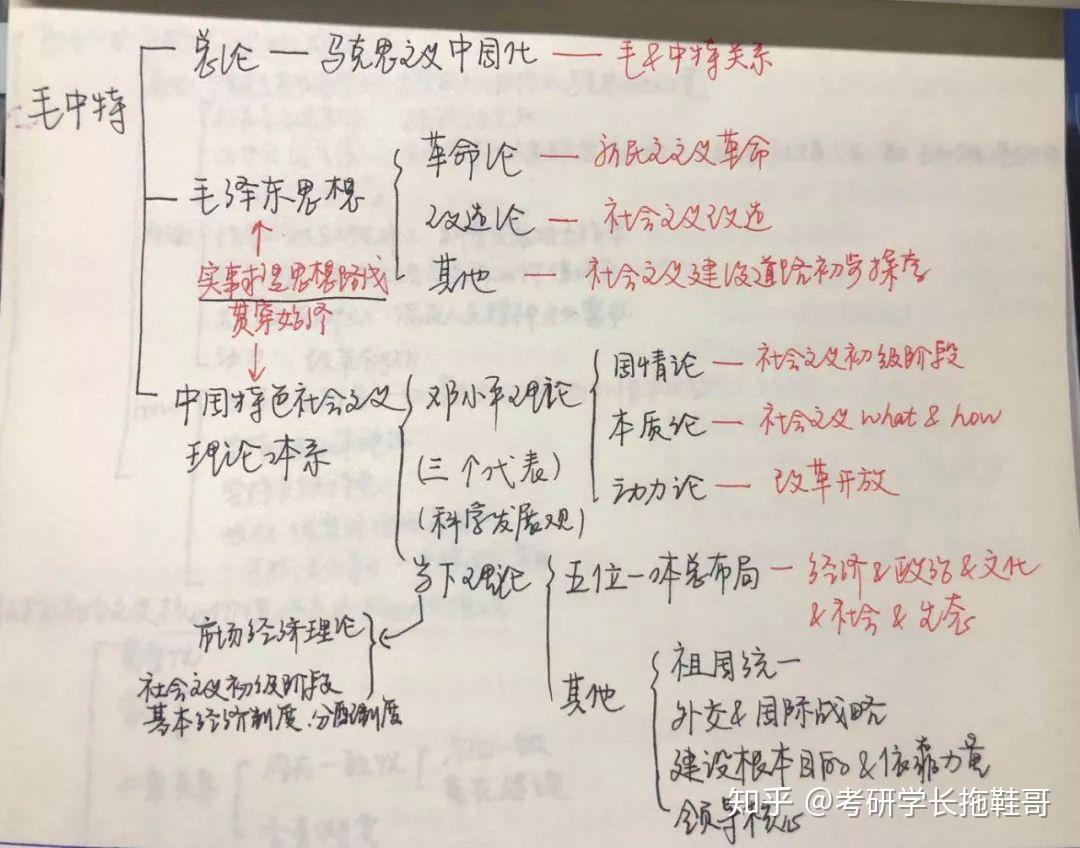 总论 — 马克思主义中国化 — 毛&中特关系
毛中特
革命论 — 新民主主义革命
毛泽东思想
改造论 — 社会主义改造
其他 — 社会主义建设道路初步探索
实事求是思想路线
贯穿始终
国情论 — 社会主义初级阶段
中国特色社会主义
理论体系
邓小平理论
本质论 — 社会主义 what & how
(三个代表)
动力论 — 改革开放
(科学发展观)
当下理论
五位一体总布局 — 经济&政治&文化
&社会&生态
市场经济理论
社会主义初级阶段
基本经济制度、分配制度
其他
祖国统一
外交&国际战略
建设根本目的&依靠力量
领导核心
知乎 @考研学长拖鞋哥